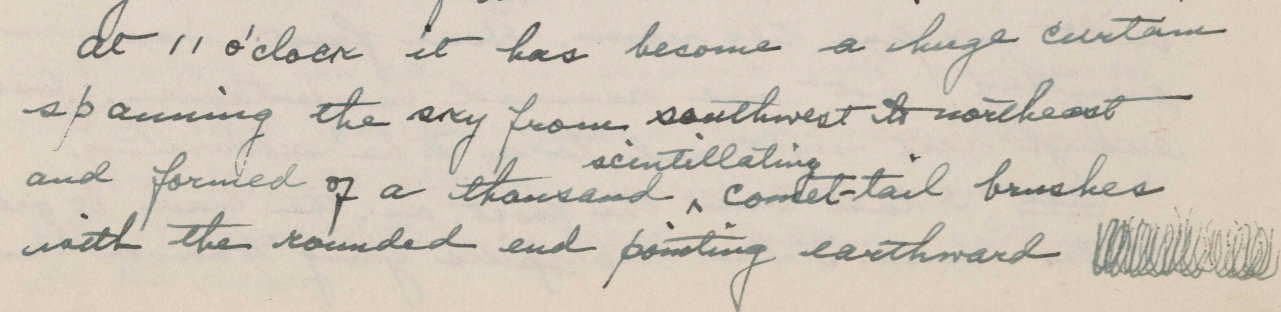 at 11 o'clock it has become a huge curtain
spanning the sky from southwest to northeast
and formed of a thousand ^ scintillating comet-tail brushes
with the rounded end pointing earthward